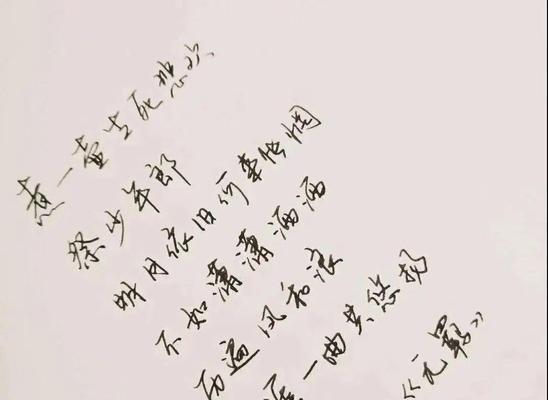 煮一壶生死悲欢
祭少年郎
明月依旧何来怅惘
不如潇潇洒洒
历遍风和浪
一曲共悠扬
《元羁》